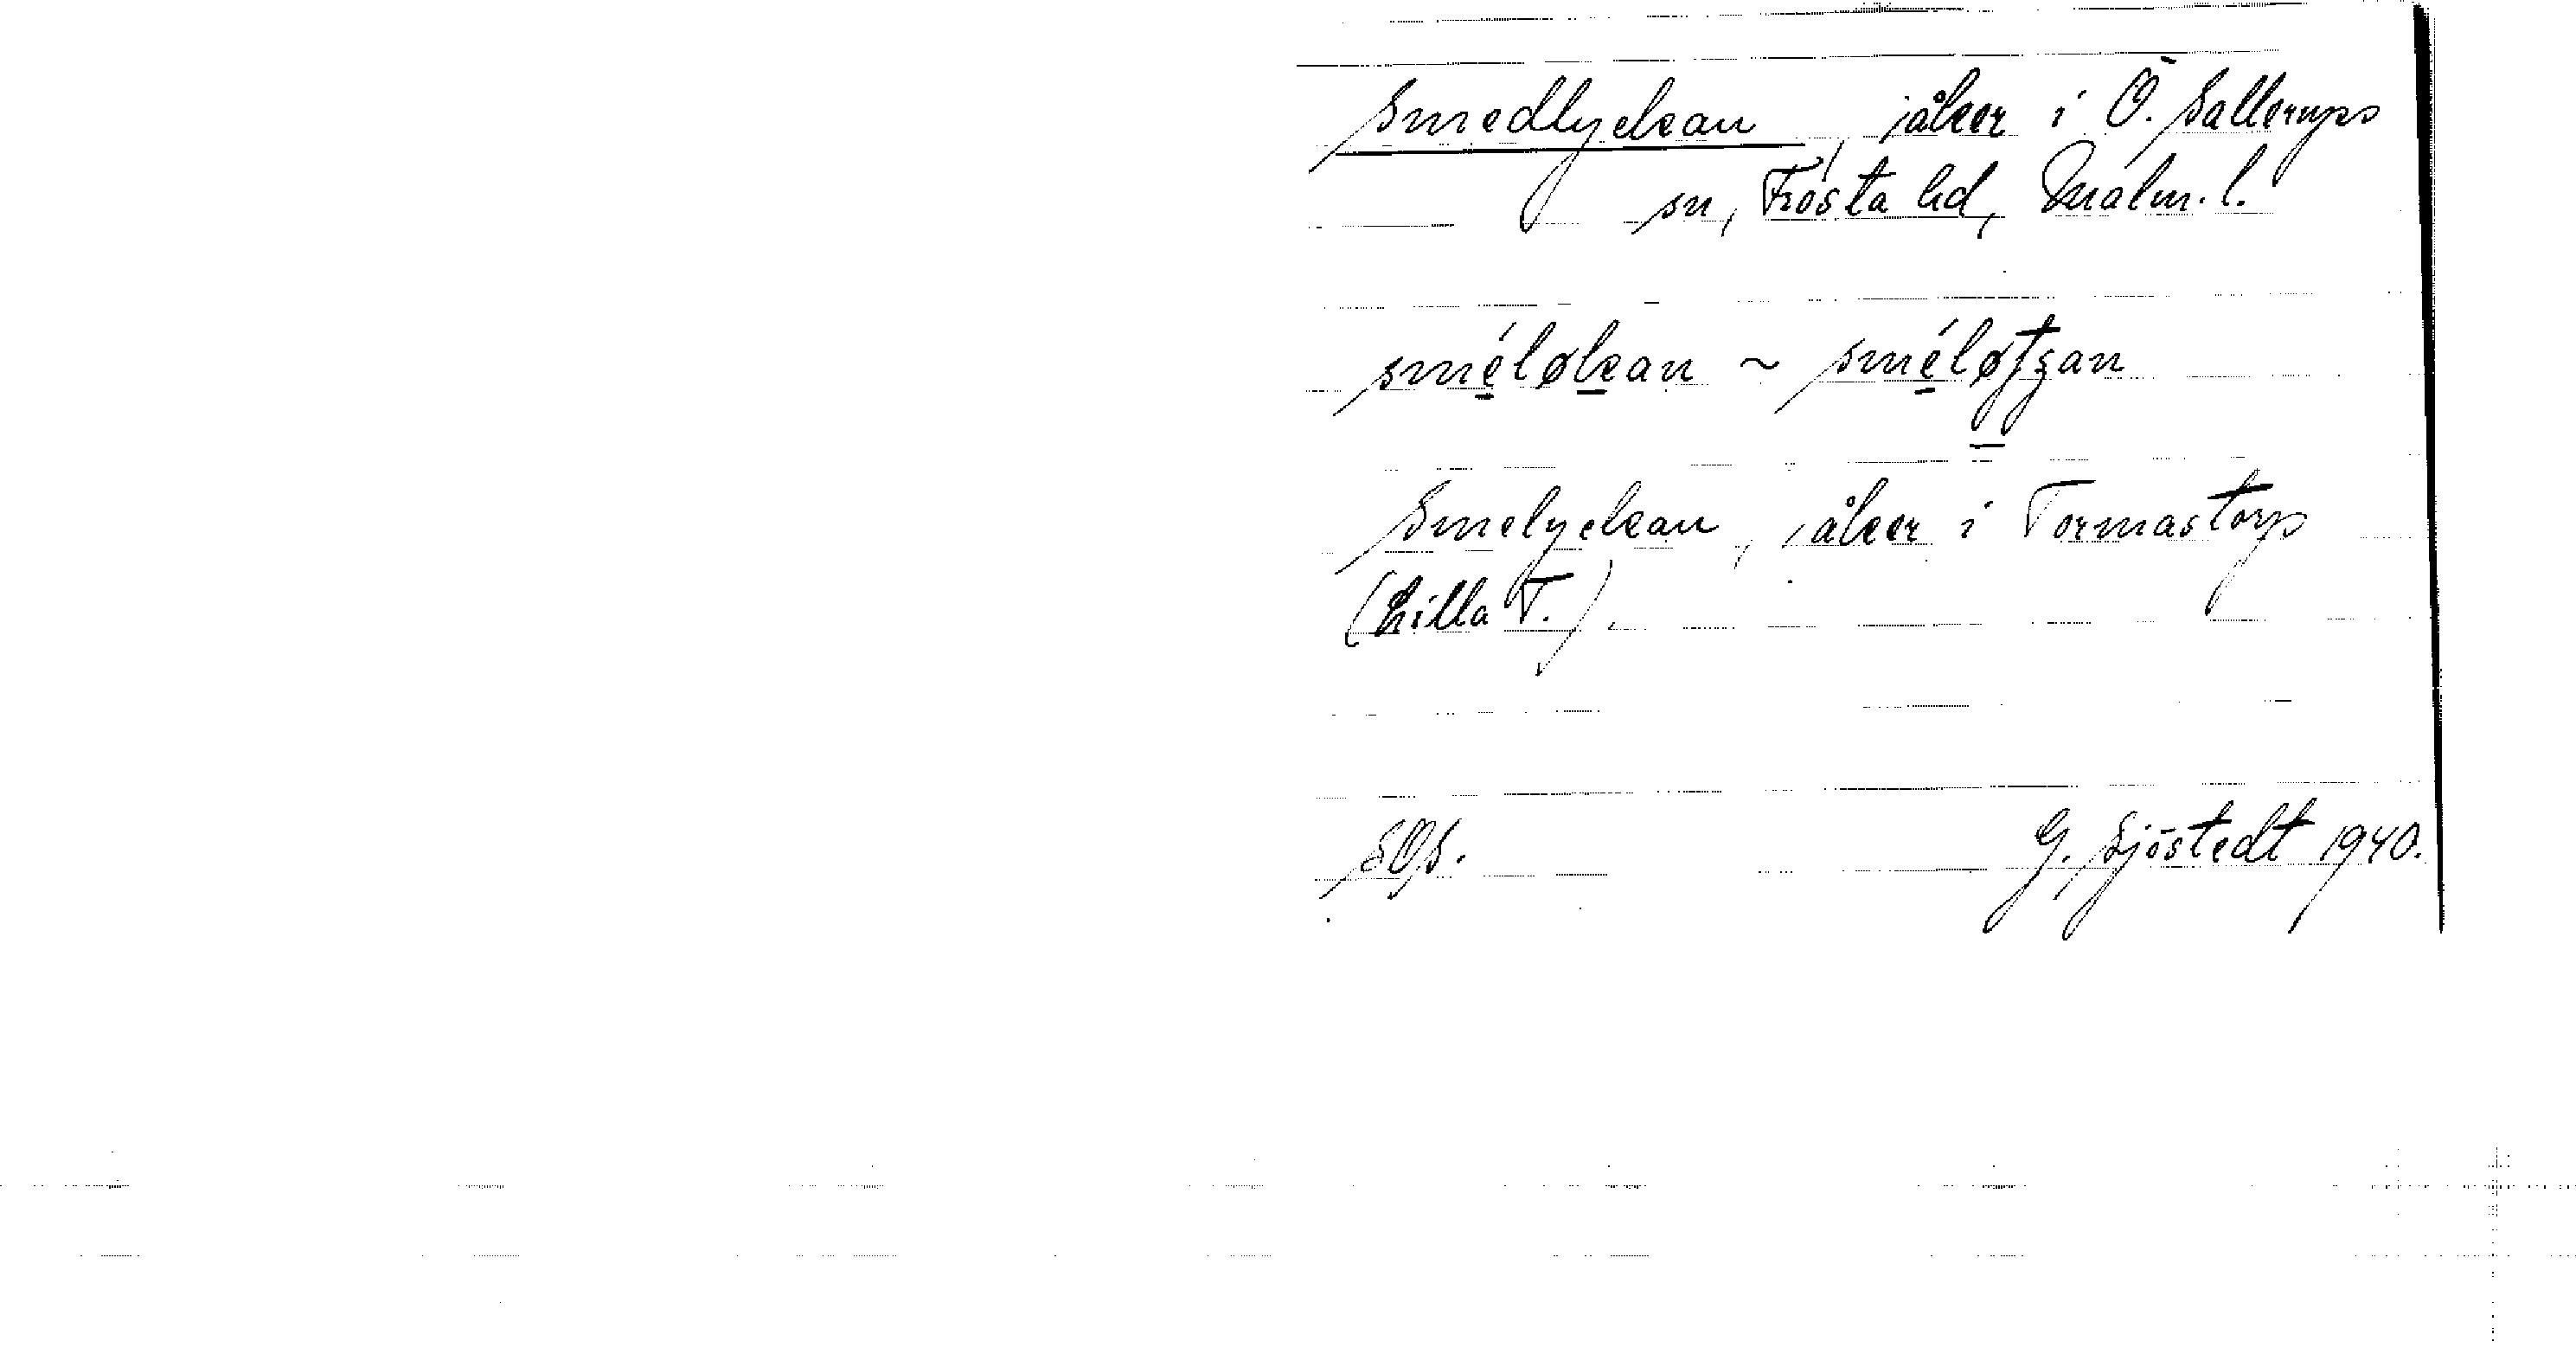 Smedlyckan, åker i Ö. Sallerups
sn, Frosta hd, Malm. l.
sméløkan ~ sméløtʒan
Smelyckan, åker i Tormastorp
(Lilla T.).
SOS.
G. Sjöstedt 1940.